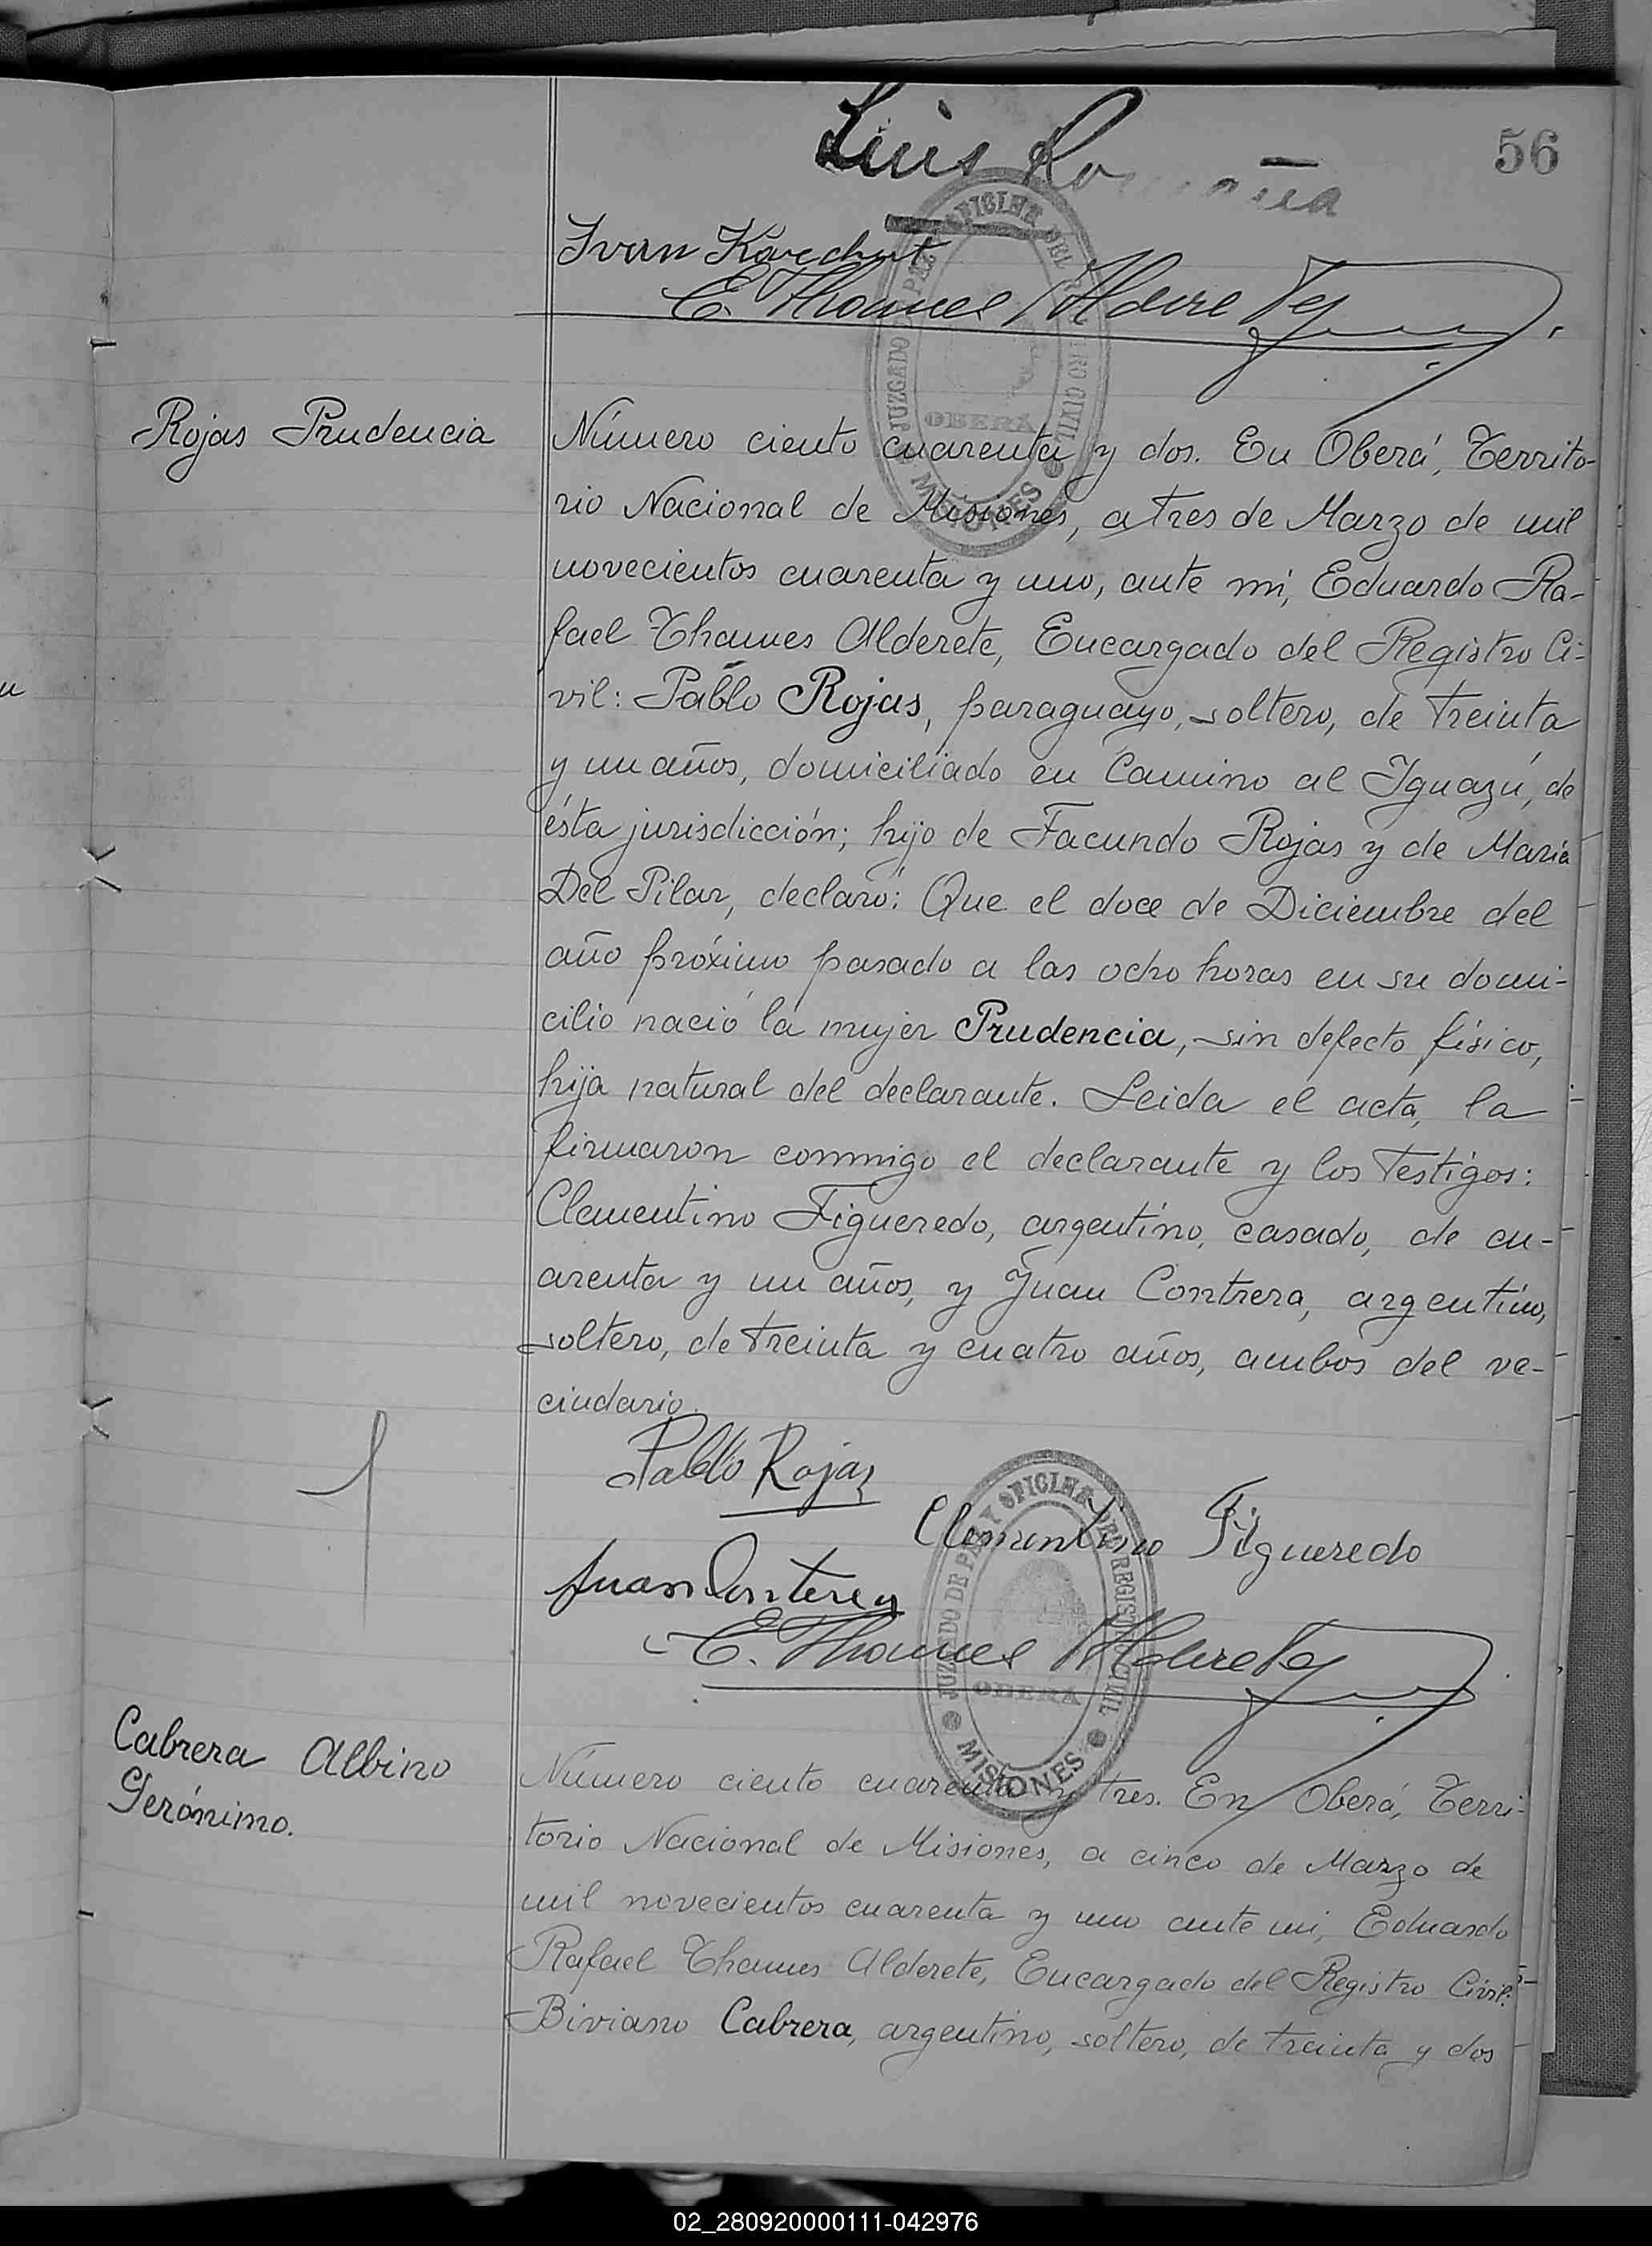 56
Luis
Ivan
E. Thames Alderete
JUZGADO DE PAZ Y OFICINA DEL REGISTRO CIVIL
OBERÁ
MISIONES
Rojas Prudencia
Número ciento cuarenta y dos. En Oberá, Territo-
rio Nacional de Misiones, a tres de Marzo de mil
novecientos cuarenta y uno, ante mí, Eduardo Ra-
fael Thames Alderete, Encargado del Registro Ci-
vil: Pablo Rojas, paraguayo, soltero, de treinta
y un años, domiciliado en Camino al Iguazú, de
ésta jurisdicción; hijo de Facundo Rojas y de María
Del Pilar, declaró: Que el doce de Diciembre del
año próximo pasado a las ocho horas en su domi-
cilio nació la mujer Prudencia, sin defecto físico,
hija natural del declarante. Leida el acta, la
firmaron conmigo el declarante y los testigos:
Clementino Figueredo, argentino, casado, de cu-
arenta y un años, y Juan Contrera, argentino,
soltero, de treinta y cuatro años, ambos del ve-
cindario.
Pablo Rojas
Clementino Figueredo
Juan Contrera
E. Thames Alderete
JUZGADO DE PAZ Y OFICINA DEL REGISTRO CIVIL
OBERÁ
MISIONES
Cabrera Albino
Gerónimo.
Número ciento cuarenta y tres. En Oberá, Terri-
torio Nacional de Misiones, a cinco de Marzo de
mil novecientos cuarenta y uno ante mi, Eduardo
Rafael Thames Alderete, Encargado del Registro Civil:
Biviano Cabrera, argentino, soltero, de treinta y dos
02_280920000111-042976